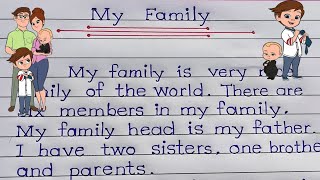 My Family
My family is very
of the world. There are
members in my family.
My family head is my father.
I have two sisters, one brothe
and parents.